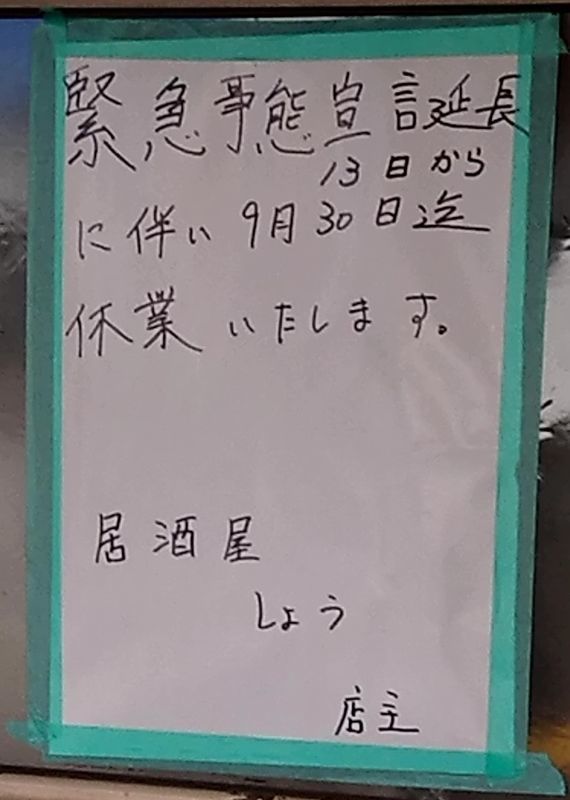 緊急事態宣言延長
13日から
に伴い9月30日迄
休業いたします。
居酒屋
しょう
店主